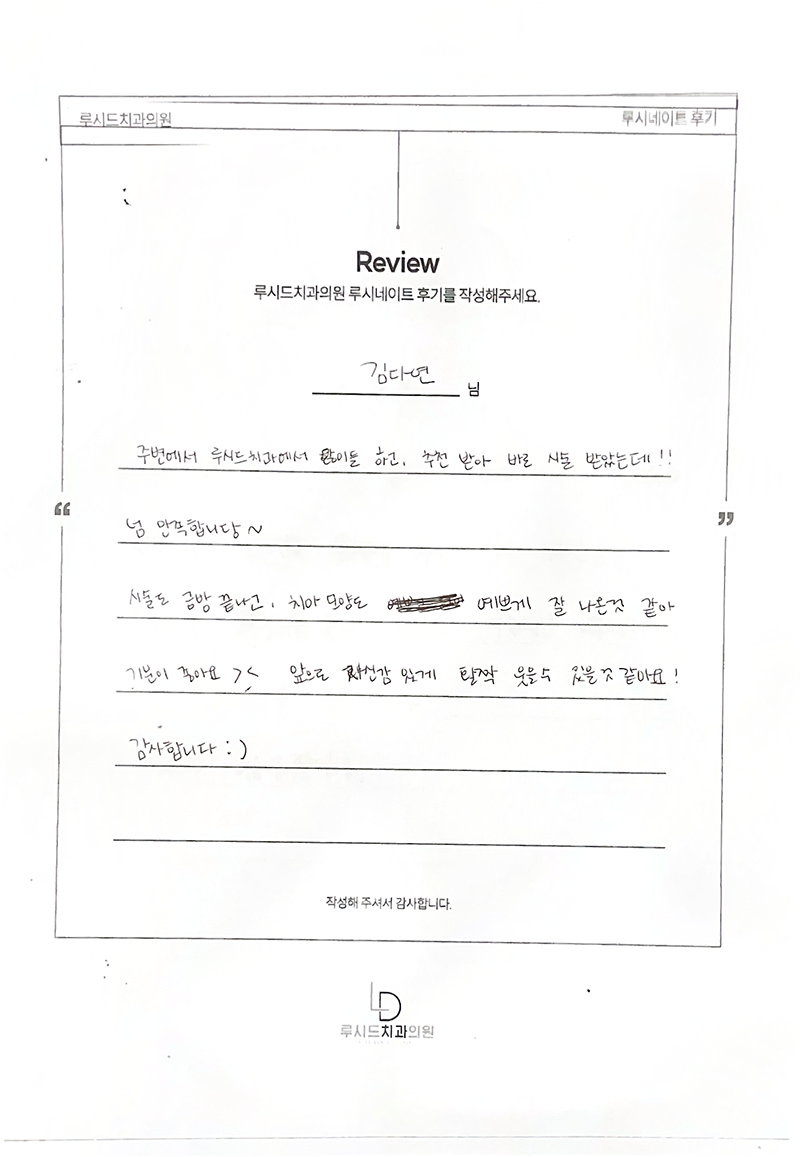 루시드치과의원
루시네이트 후기
Review
루시드치과의원 루시네이트 후기를 작성해주세요.
김다연 님
주변에서 루시드치과에서 많이들 하고, 추천 받아 바로 시술 받았는데!!
넘 만족합니당~
시술도 금방 끝나고, 치아 모양도 예쁘게 잘 나온것 같아
기분이 좋아요 >< 앞으로 자신감 있게 활짝 웃을수 있을것 같아요!
감사합니다 :)
작성해 주셔서 감사합니다.
LD
루시드치과의원